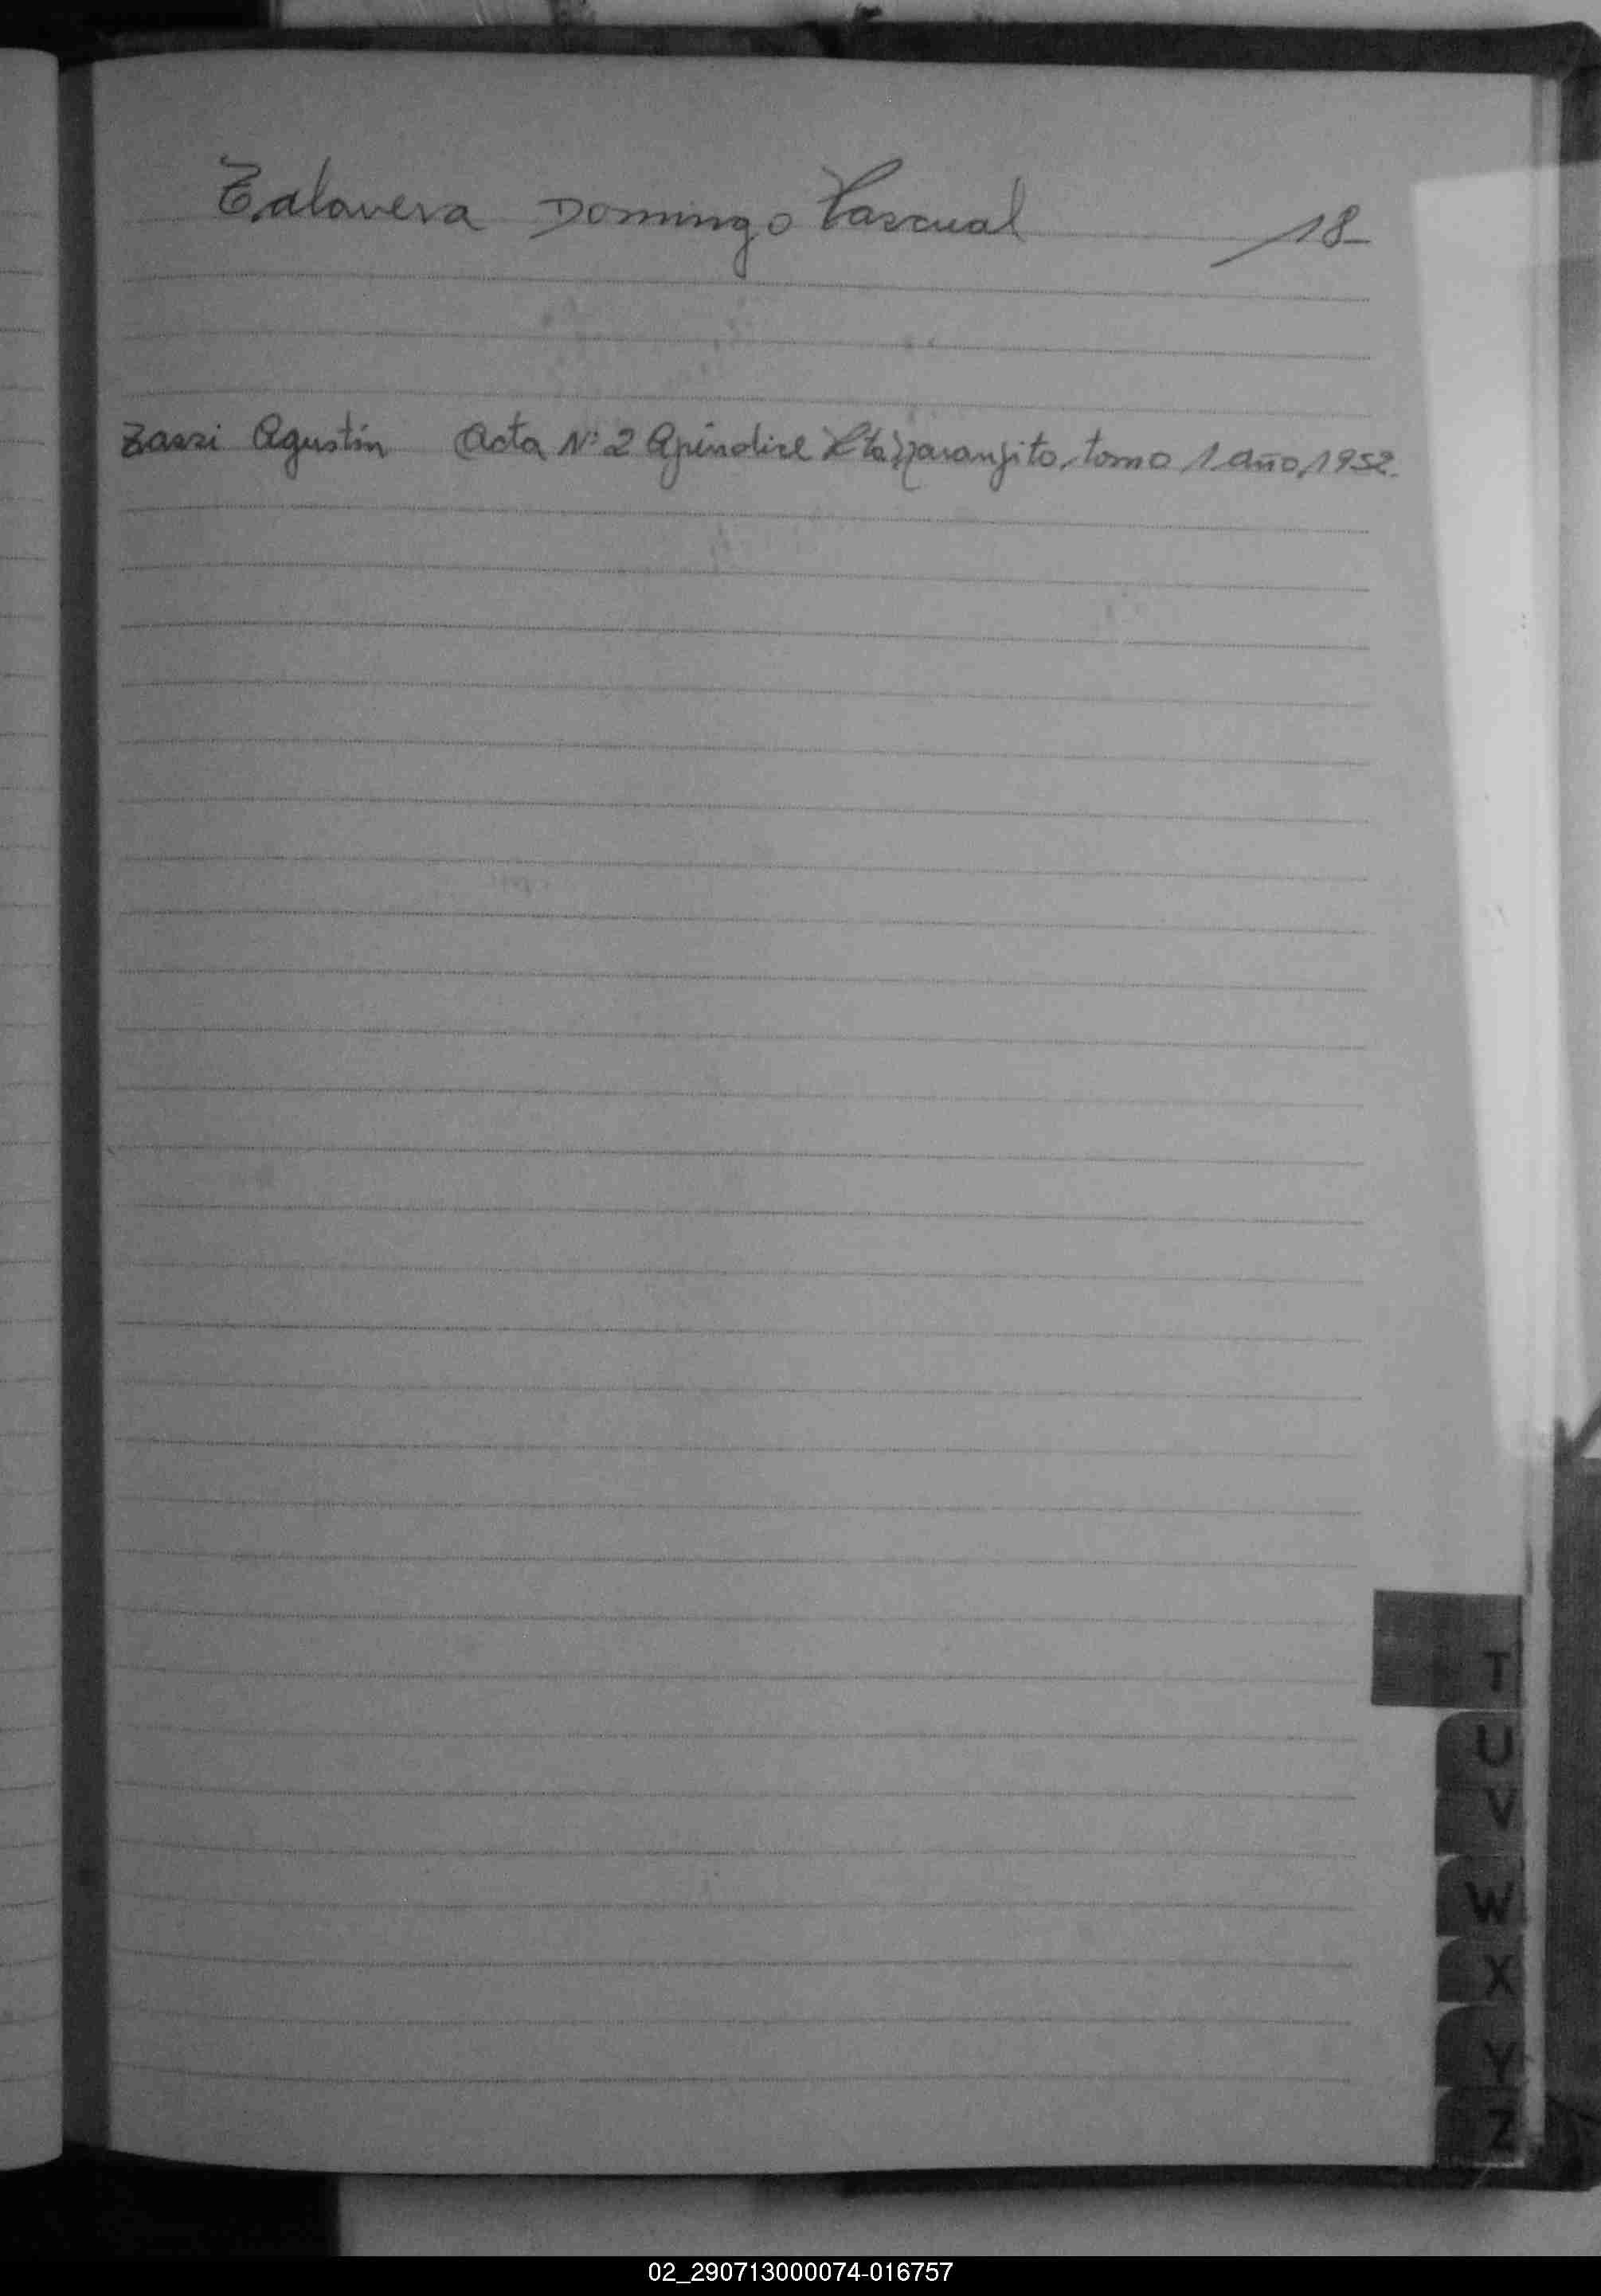 Talavera Domingo Pascual 18
Tassi Agustín Acta Nº 2 Apéndice Naranjito, tomo 1 año, 1952.
T
U
V
W
X
Y
Z
02_290713000074-016757